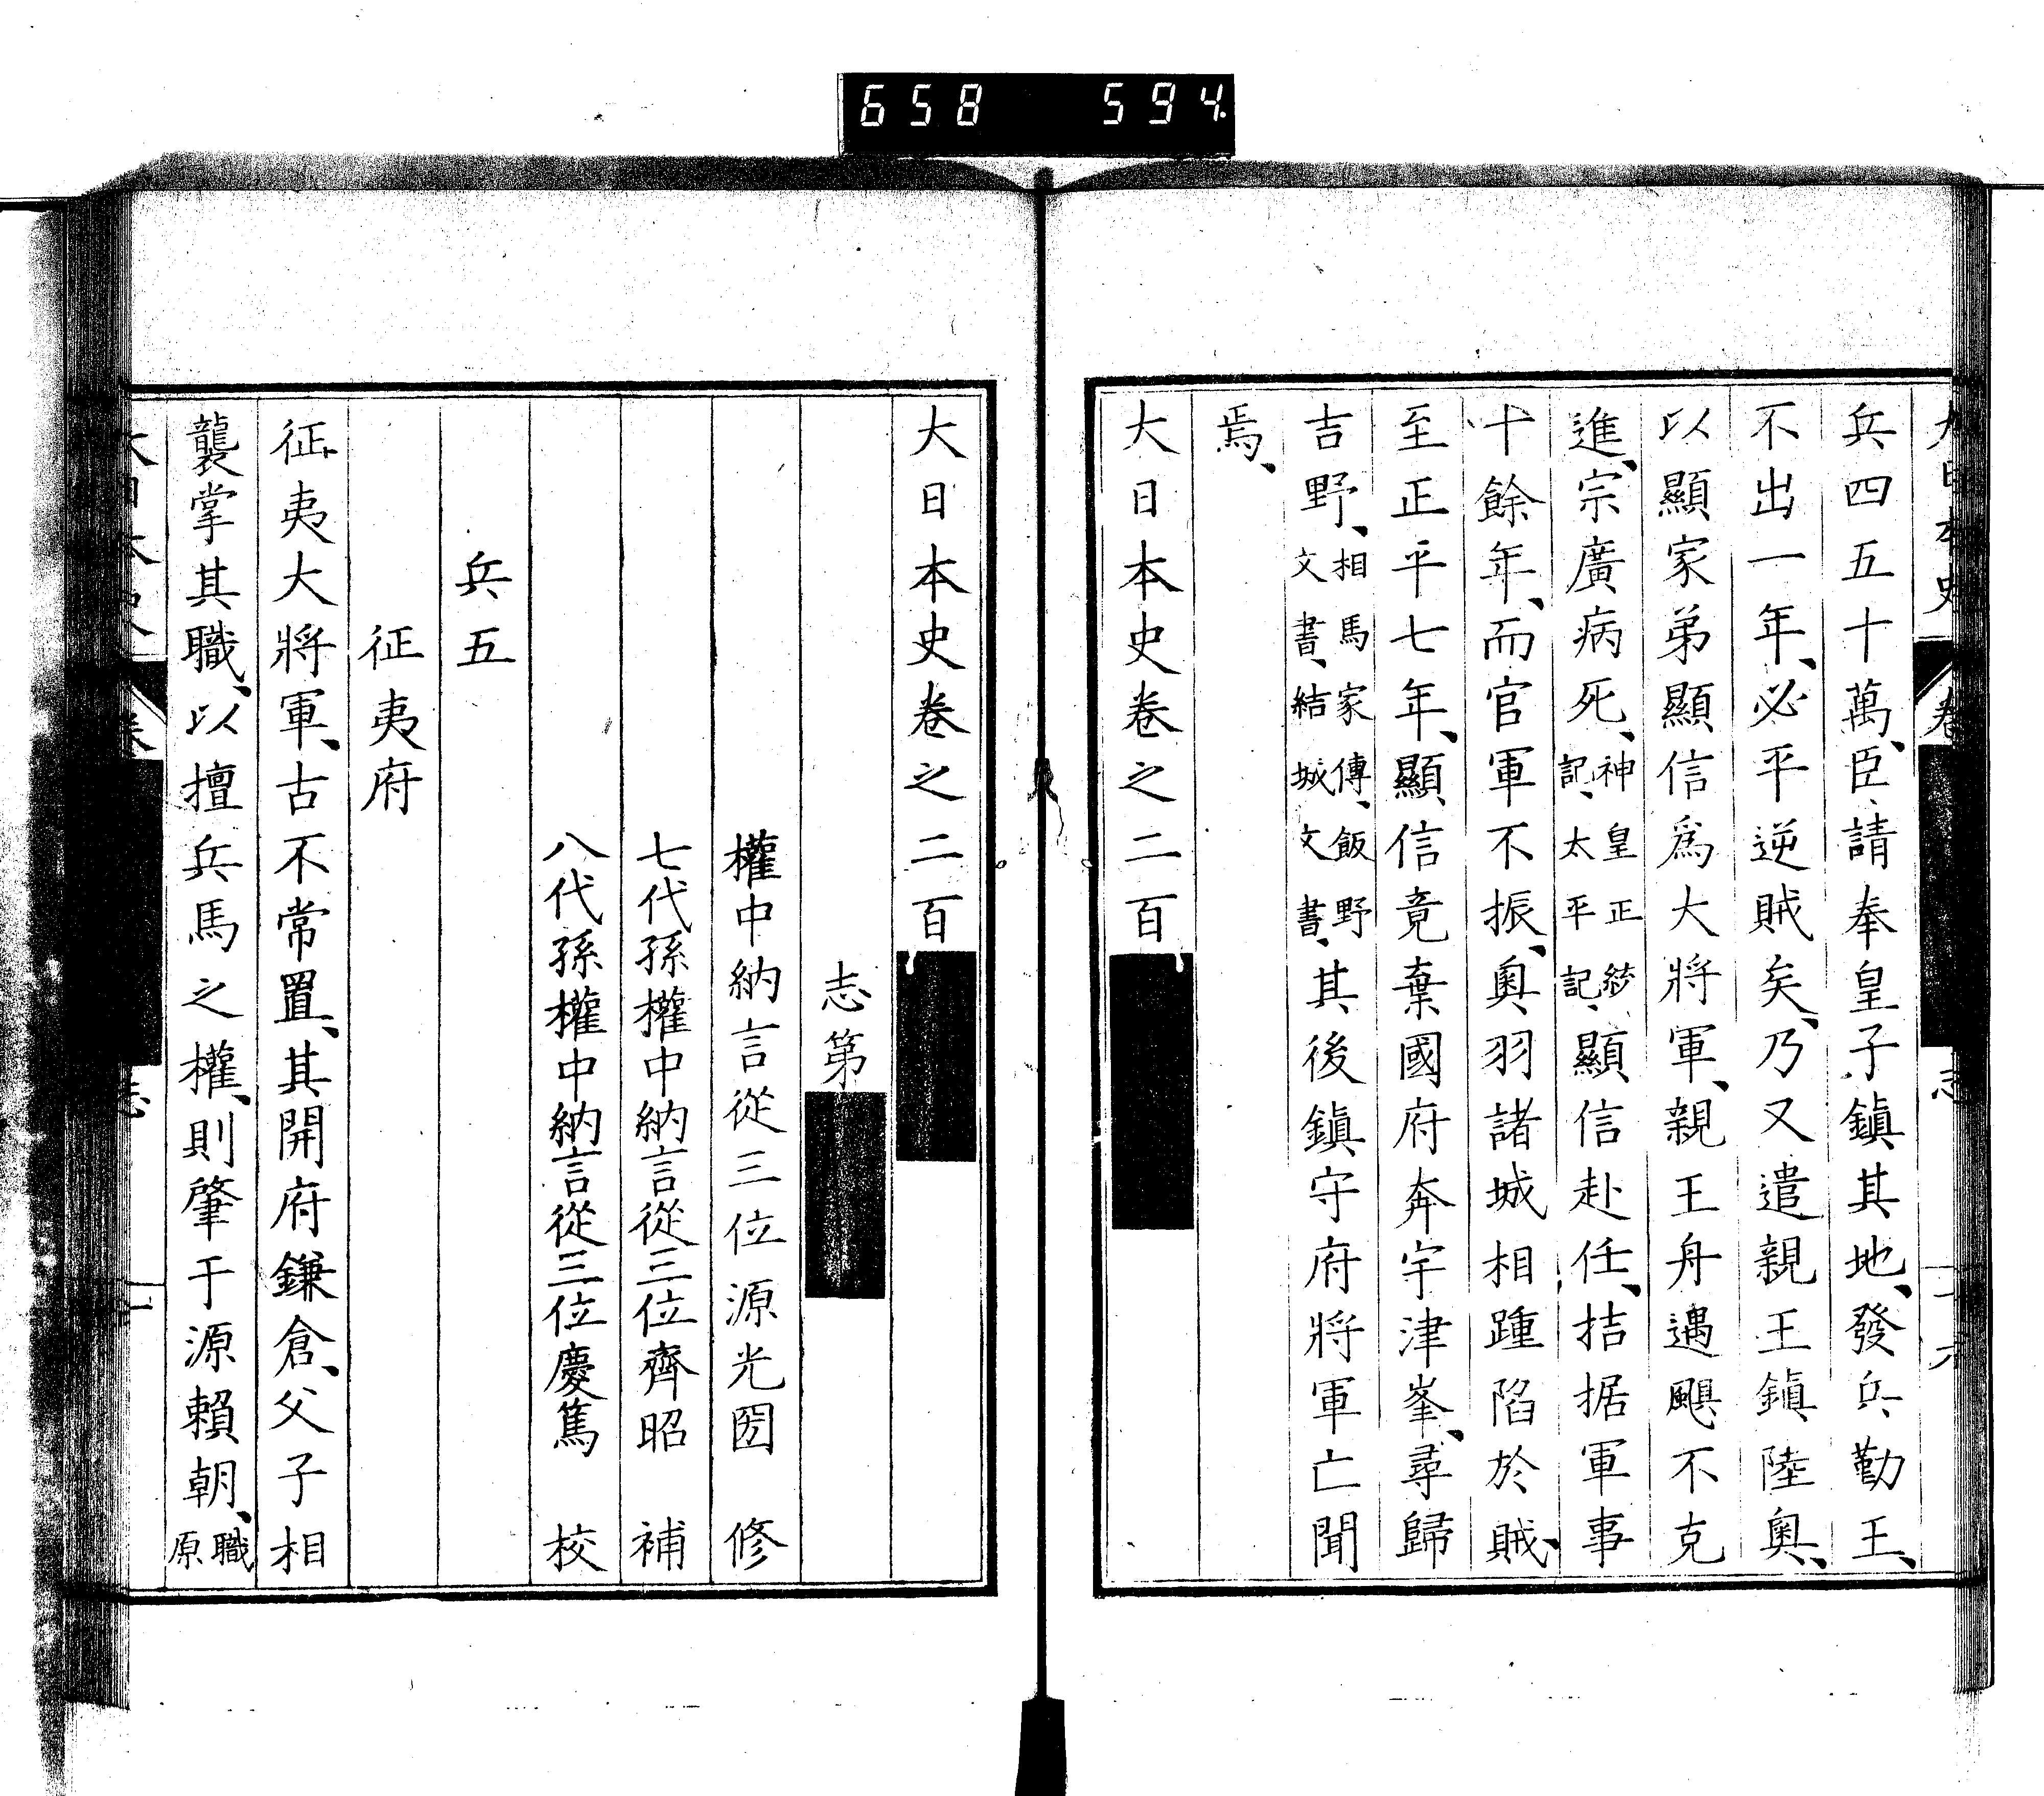 658 594.
兵四五十萬、臣請奉皇子鎭其地、發兵勤王、
不出一年、必平逆賊矣、乃又遣親王鎭陸奥、
以顯家弟顯信爲大將軍、親王舟遇颶不克
進、宗廣病死、神皇正統記、太平記、顯信赴任、拮据軍事
十餘年、而官軍不振、奥羽諸城相踵陷於賊、
至正平七年、顯信竟棄國府奔宇津峯、尋歸
吉野、相馬家傳、飯野文書、結城文書、其後鎭守府將軍亡聞
焉、
大日本史卷之二百
大日本史卷之二百
志第
權中納言從三位源光圀 修
七代孫權中納言從三位齊昭 補
八代孫權中納言從三位慶篤 校
兵五
征夷府
征夷大將軍、古不常置、其開府鎌倉、父子相
襲掌其職、以擅兵馬之權、則肇于源賴朝、職原